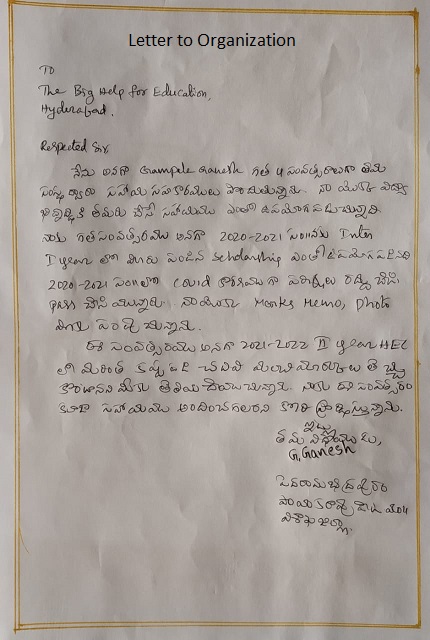 Letter to Organization
To
The Big Help for Education,
Hyderabad.
Respected Sir,
నేను అనగా Grampele Ganesh గత 4 సంవత్సరాలుగా తమ
సంస్థ ద్వారా సహాయ సహకారములు పొందుతున్నాను. నా యొక్క విద్యా
తమరు చేసే సహాయము ఎంతో ఉపయోగపడుచున్నది.
నాకు గత సంవత్సరము అనగా 2020-2021 సం॥నకు Inter
I year లో మీరు పంపిన Scholarship ఎంతో ఉపయోగపడినది
2020-2021 సం॥లో Covid కారణముగా పరీక్షలు రద్దు చేసి
pass చేసి యున్నారు. నా యొక్క Marks Memo, Photo
మీకు పంపిస్తున్నాను.
ఈ సంవత్సరము అనగా 2021-2022 II year HEC
లో మరింత కష్టపడి చదివి మంచి మార్కులు తెచ్చు
కొంటానని మీకు తెలియచేయుచున్నాను. నాకు ఈ సంవత్సరం
కూడా సహాయము అందించగలరని కోరి ప్రార్థిస్తున్నాను.
ఇట్లు
తమ విధేయుడు,
G. Ganesh
పెదరామభద్రపురం
పాయకరావుపేట మం॥
విశాఖ జిల్లా.